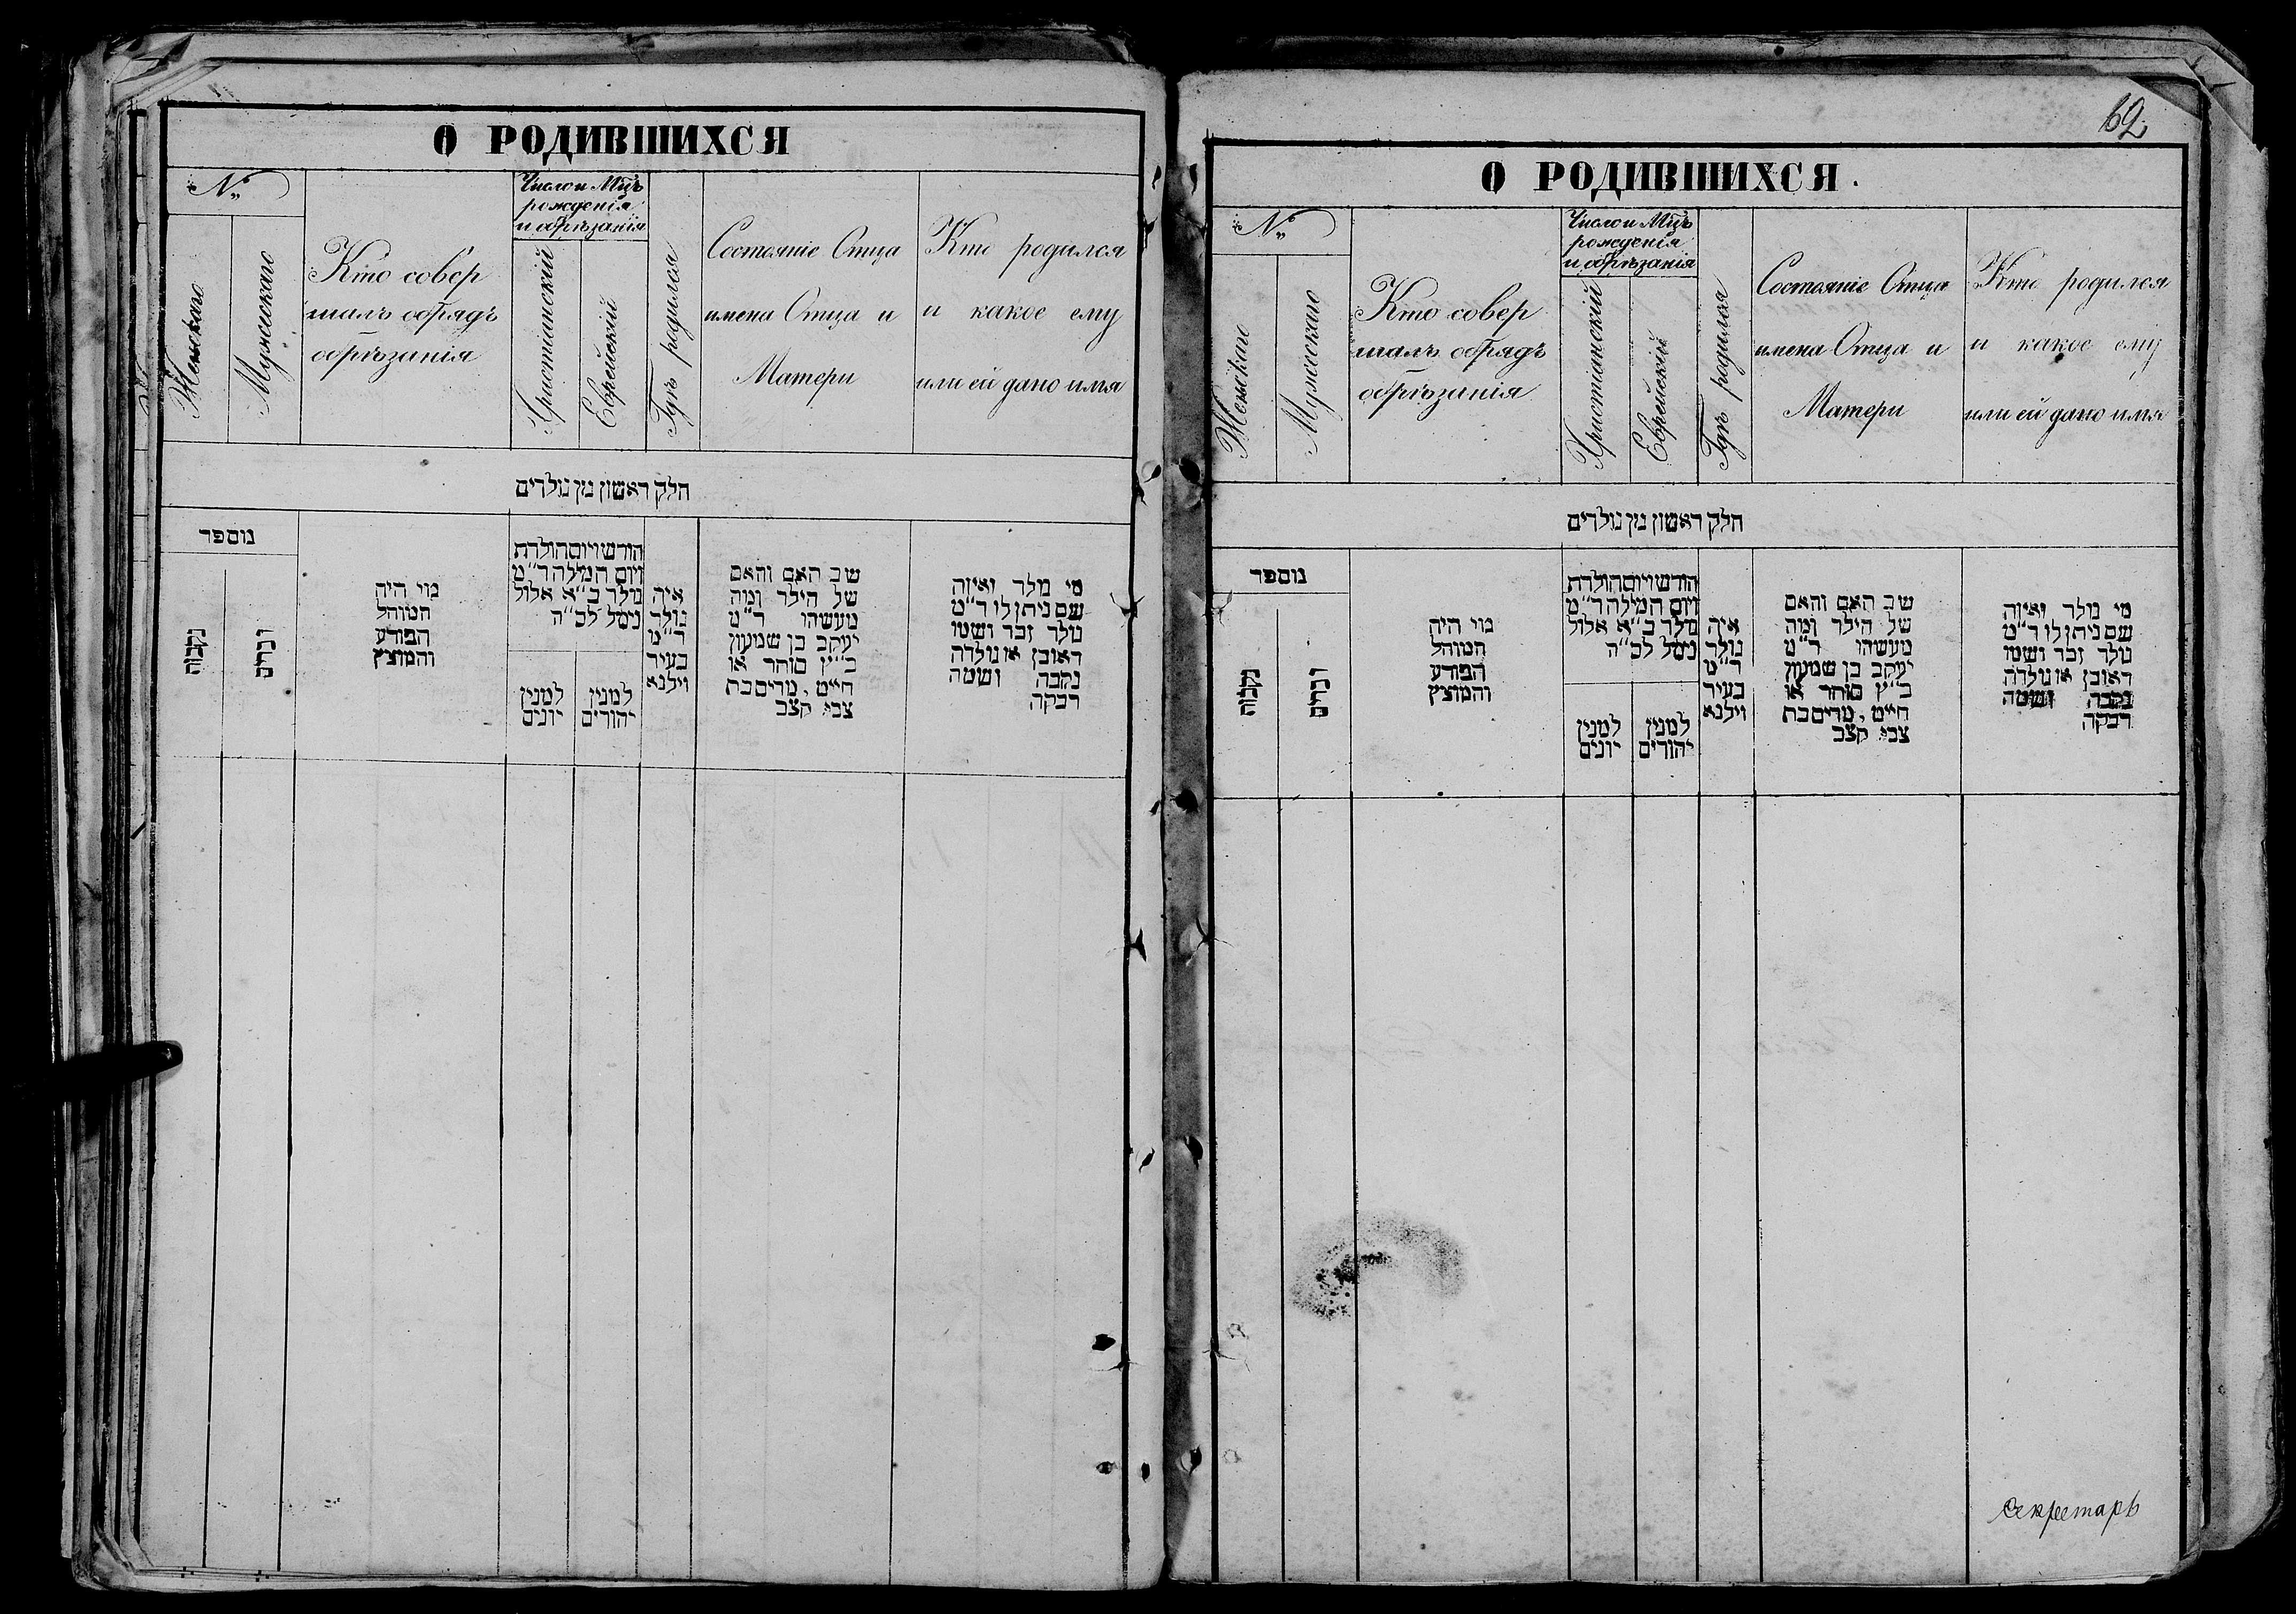 О РОДИВШИХСЯ
№
Женскаго
Мужескаго
Кто совер
шалъ обрядъ
обрѣзанія
Число и Мцъ
рожденія
и обрѣзанія
Христіанскій
Еврейскій
Гдѣ родился
Состояніе Отца
имена Отца и
Матери
Кто родился
и какое ему
или ей дано имя
חלק ראשון מן נולדים
מספר
נקבות
זכרים
מי היה
המוהל
הפורע
והמוצץ
חודש ויום הולדת
ויום המילה ד״מ
נולד כ״א אלול
נימל לכ״ה
למנין
יונים
למנין
יהודים
איה
נולד
ד״מ
בעיר
וילנא
שב האם והאם
של הילד ומה
מעשהו ד״מ
יעקב בן שמעון
כ״ץ סוחר או
חייט, מרים בת
צבי קצב
מי נולד ואיזה
שם ניתן לו ד״מ
נולד זכר ושמו
ראובן או נולדה
נקבה ושמה
רבקה
62
О РОДИВШИХСЯ.
№
Женскаго
Мужескаго
Кто совер
шалъ обрядъ
обрѣзанія
Число и Мцъ
рожденія
и обрѣзанія
Христіанскій
Еврейскій
Гдѣ родился
Состояніе Отца
имена Отца и
Матери
Кто родился
и какое ему
или ей дано имя
חלק ראשון מן נולדים
מספר
נקבות
זכרים
מי היה
המוהל
הפורע
והמוצץ
חודש ויום הולדת
ויום המילה ד״מ
נולד כ״א אלול
נימל לכ״ה
למנין
יונים
למנין
יהודים
איה
נולד
ד״מ
בעיר
וילנא
שב האם והאם
של הילד ומה
מעשהו ד״מ
יעקב בן שמעון
כ״ץ סוחר או
חייט, מרים בת
צבי קצב
מי נולד ואיזה
שם ניתן לו ד״מ
נולד זכר ושמו
ראובן או נולדה
נקבה ושמה
רבקה
Секретарь